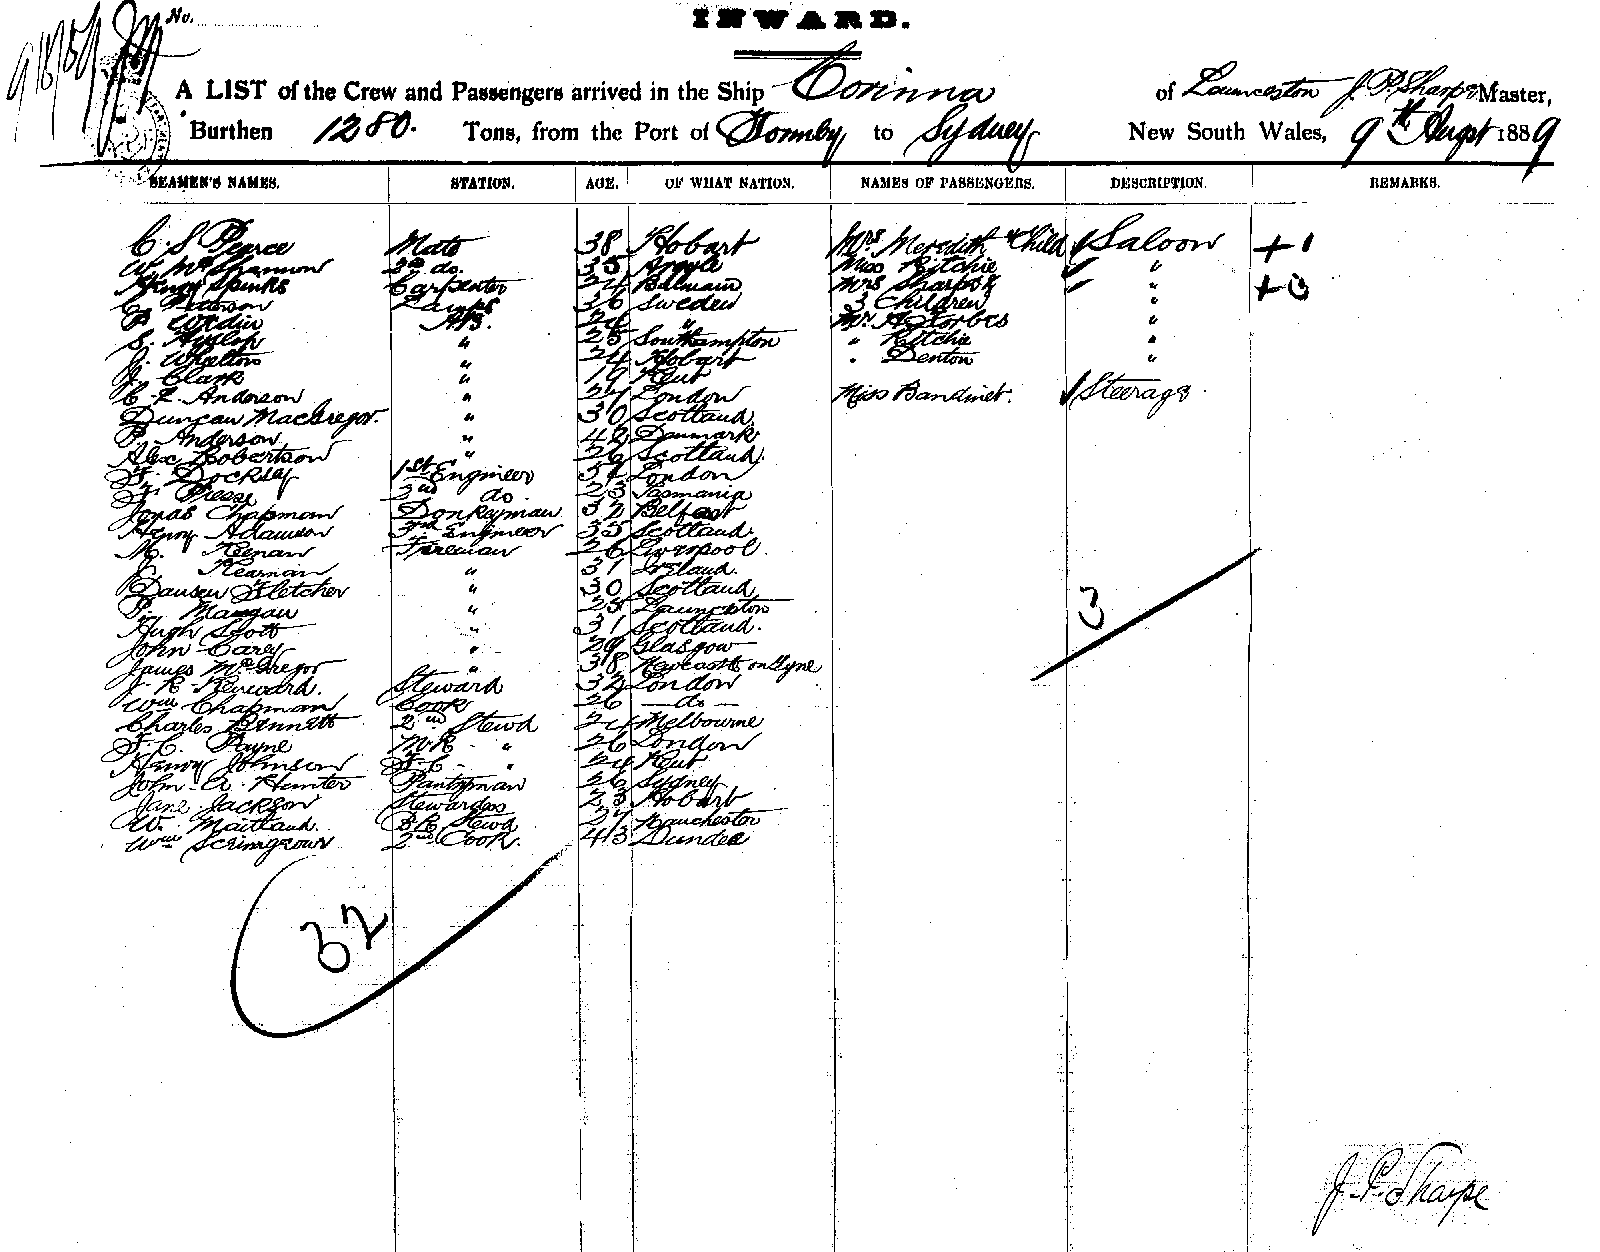 No.
INWARD.
A LIST of the Crew and Passengers arrived in the Ship Corinna of Launceston J. P. Sharpe Master,
Burthen 1280. Tons, from the Port of Formby to Sydney New South Wales, 9th Augst 1889
SEAMEN'S NAMES. STATION. AGE. OF WHAT NATION. NAMES OF PASSENGERS. DESCRIPTION. REMARKS.
C. S. Pearce Mate 38 Hobart Mrs Meredith & Child Saloon +1
W. McShannon 2nd do. 35 Argyle Miss Ritchie "
Henry Spinks Carpenter 24 Balmain Mrs Sharpe & " +3
Lamps 36 Sweden 3 Children "
AB. " Mr. H Forbes "
S. Hyslop " 25 Southampton " Ritchie "
J. Whelton " 24 Hobart " Denton "
J. Clark " 19 Kent
Anderson " London Miss Bandinet. Steerage
Duncan MacGregor. " 30 Scotland
P. Anderson " 42 Danmark
Alex Robertson " 26 Scotland.
Docksey 1st Engineer London
2nd do. 23 Tasmania
Jonas Chapman Donkeyman 32 Belfast
Henry Adamson 3rd Engineer 35 Scotland
M. Keenan Fireman 26 Liverpool.
Kearnan " 37 Ireland.
Fletcher " 30 Scotland
P. Mangan " 25 Launceston
Hugh Scott " 31 Scotland.
John Carey " 29 Glasgow
James McGregor " 38 Newcastle on Tyne
J. R. Steward 32 London
Wm Chapman Cook 26 — do —
Charles Bennett 2nd Stewd 24 Melbourne
F. C. Payne M.R. " 26 London
Henry Johnson F.C. " 24 Kent
John A. Hunter Pantryman 26 Sydney
Jane Jackson Stewardess 23 Hobart
W. Maitland. B.R. Stewd 27 Manchester
Wm Scrimgeour 2nd Cook. 43 Dundee
3
32
J. P. Sharpe